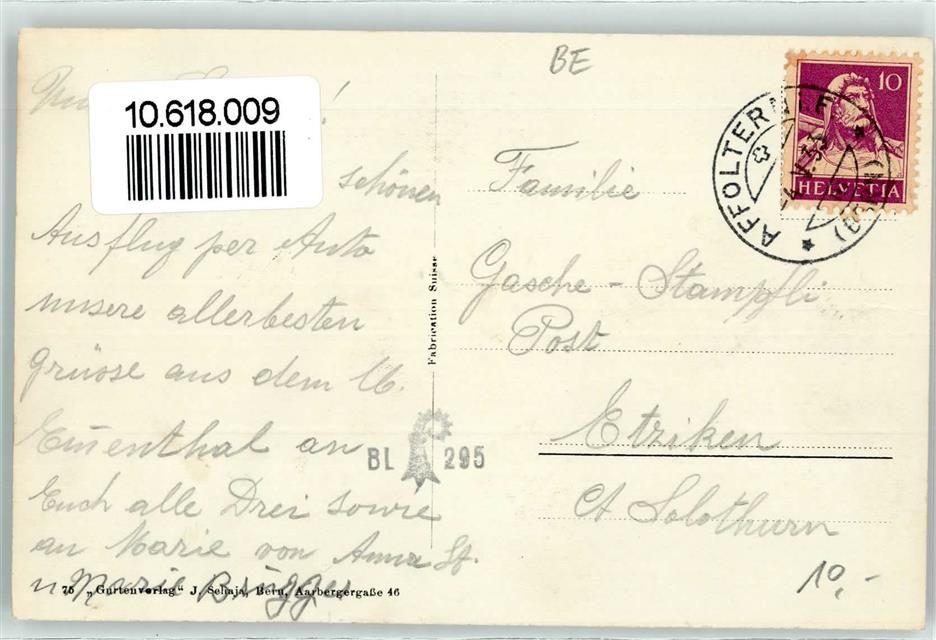 BE
10.618.009
10
HELVETIA
AFFOLTERN i.E.
(BERN)
schönen
Ausflug per Auto
unsere allerbesten
Grüsse aus dem
Emmenthal an
Euch alle Drei sowie
an Marie von Anna St.
u Marie Brügger
Familie
Gasche - Stampfli
Post
Etziken
Ct Solothurn
Fabrication Suisse
BL 295
75 „Gurtenverlag" J. Schaja, Bern, Aarbergergaße 46
10,-